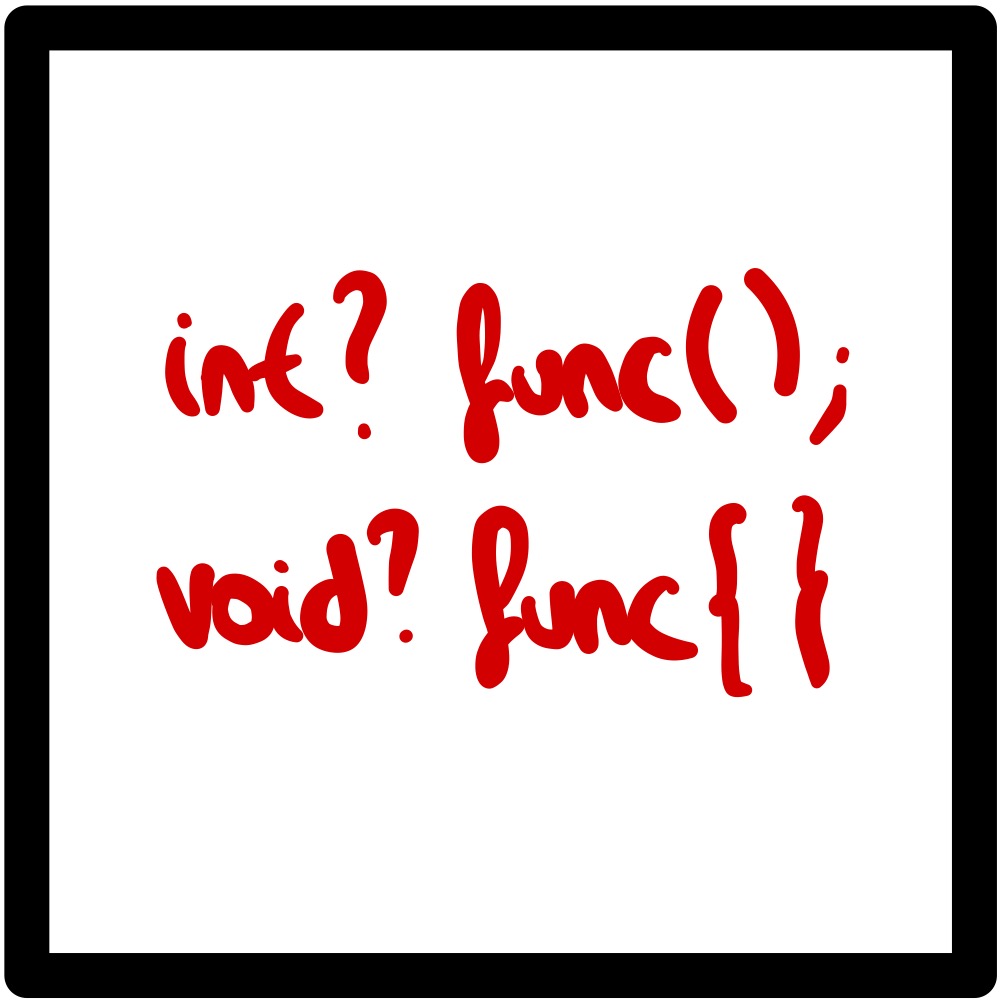 int? func();
void? func{}